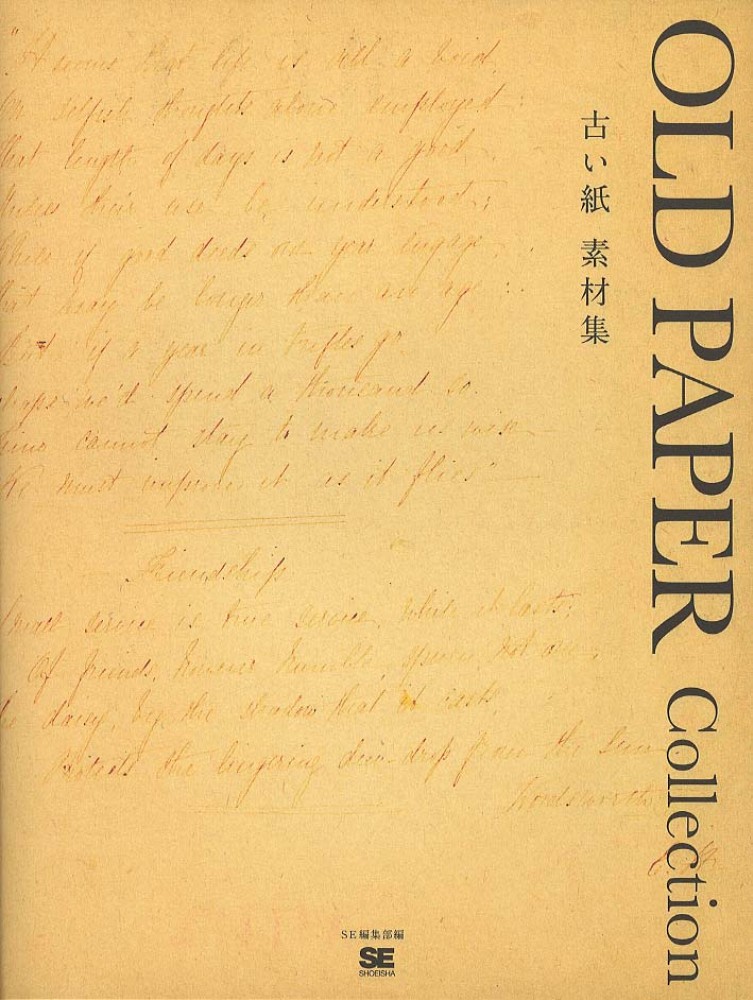 OLD PAPER Collection
古い紙 素材集
"It seems that life is all a void
On selfish thoughts alone employed:
that length of days is not a good
Unless their use be understood;
good deeds one year engage
That may be longer than an age
But if a year in trifles go
we'd spend a thousand so.
Time cannot stay to make us wise
We must improve it as it flies"
Friendship
Small service is true service while it lasts;
Of friends, however humble, spurn not one;
The daisy, by the shadow that it casts
Protects the lingering dew-drop from the Sun
Wordsworth
SE編集部編
SE
SHOEISHA